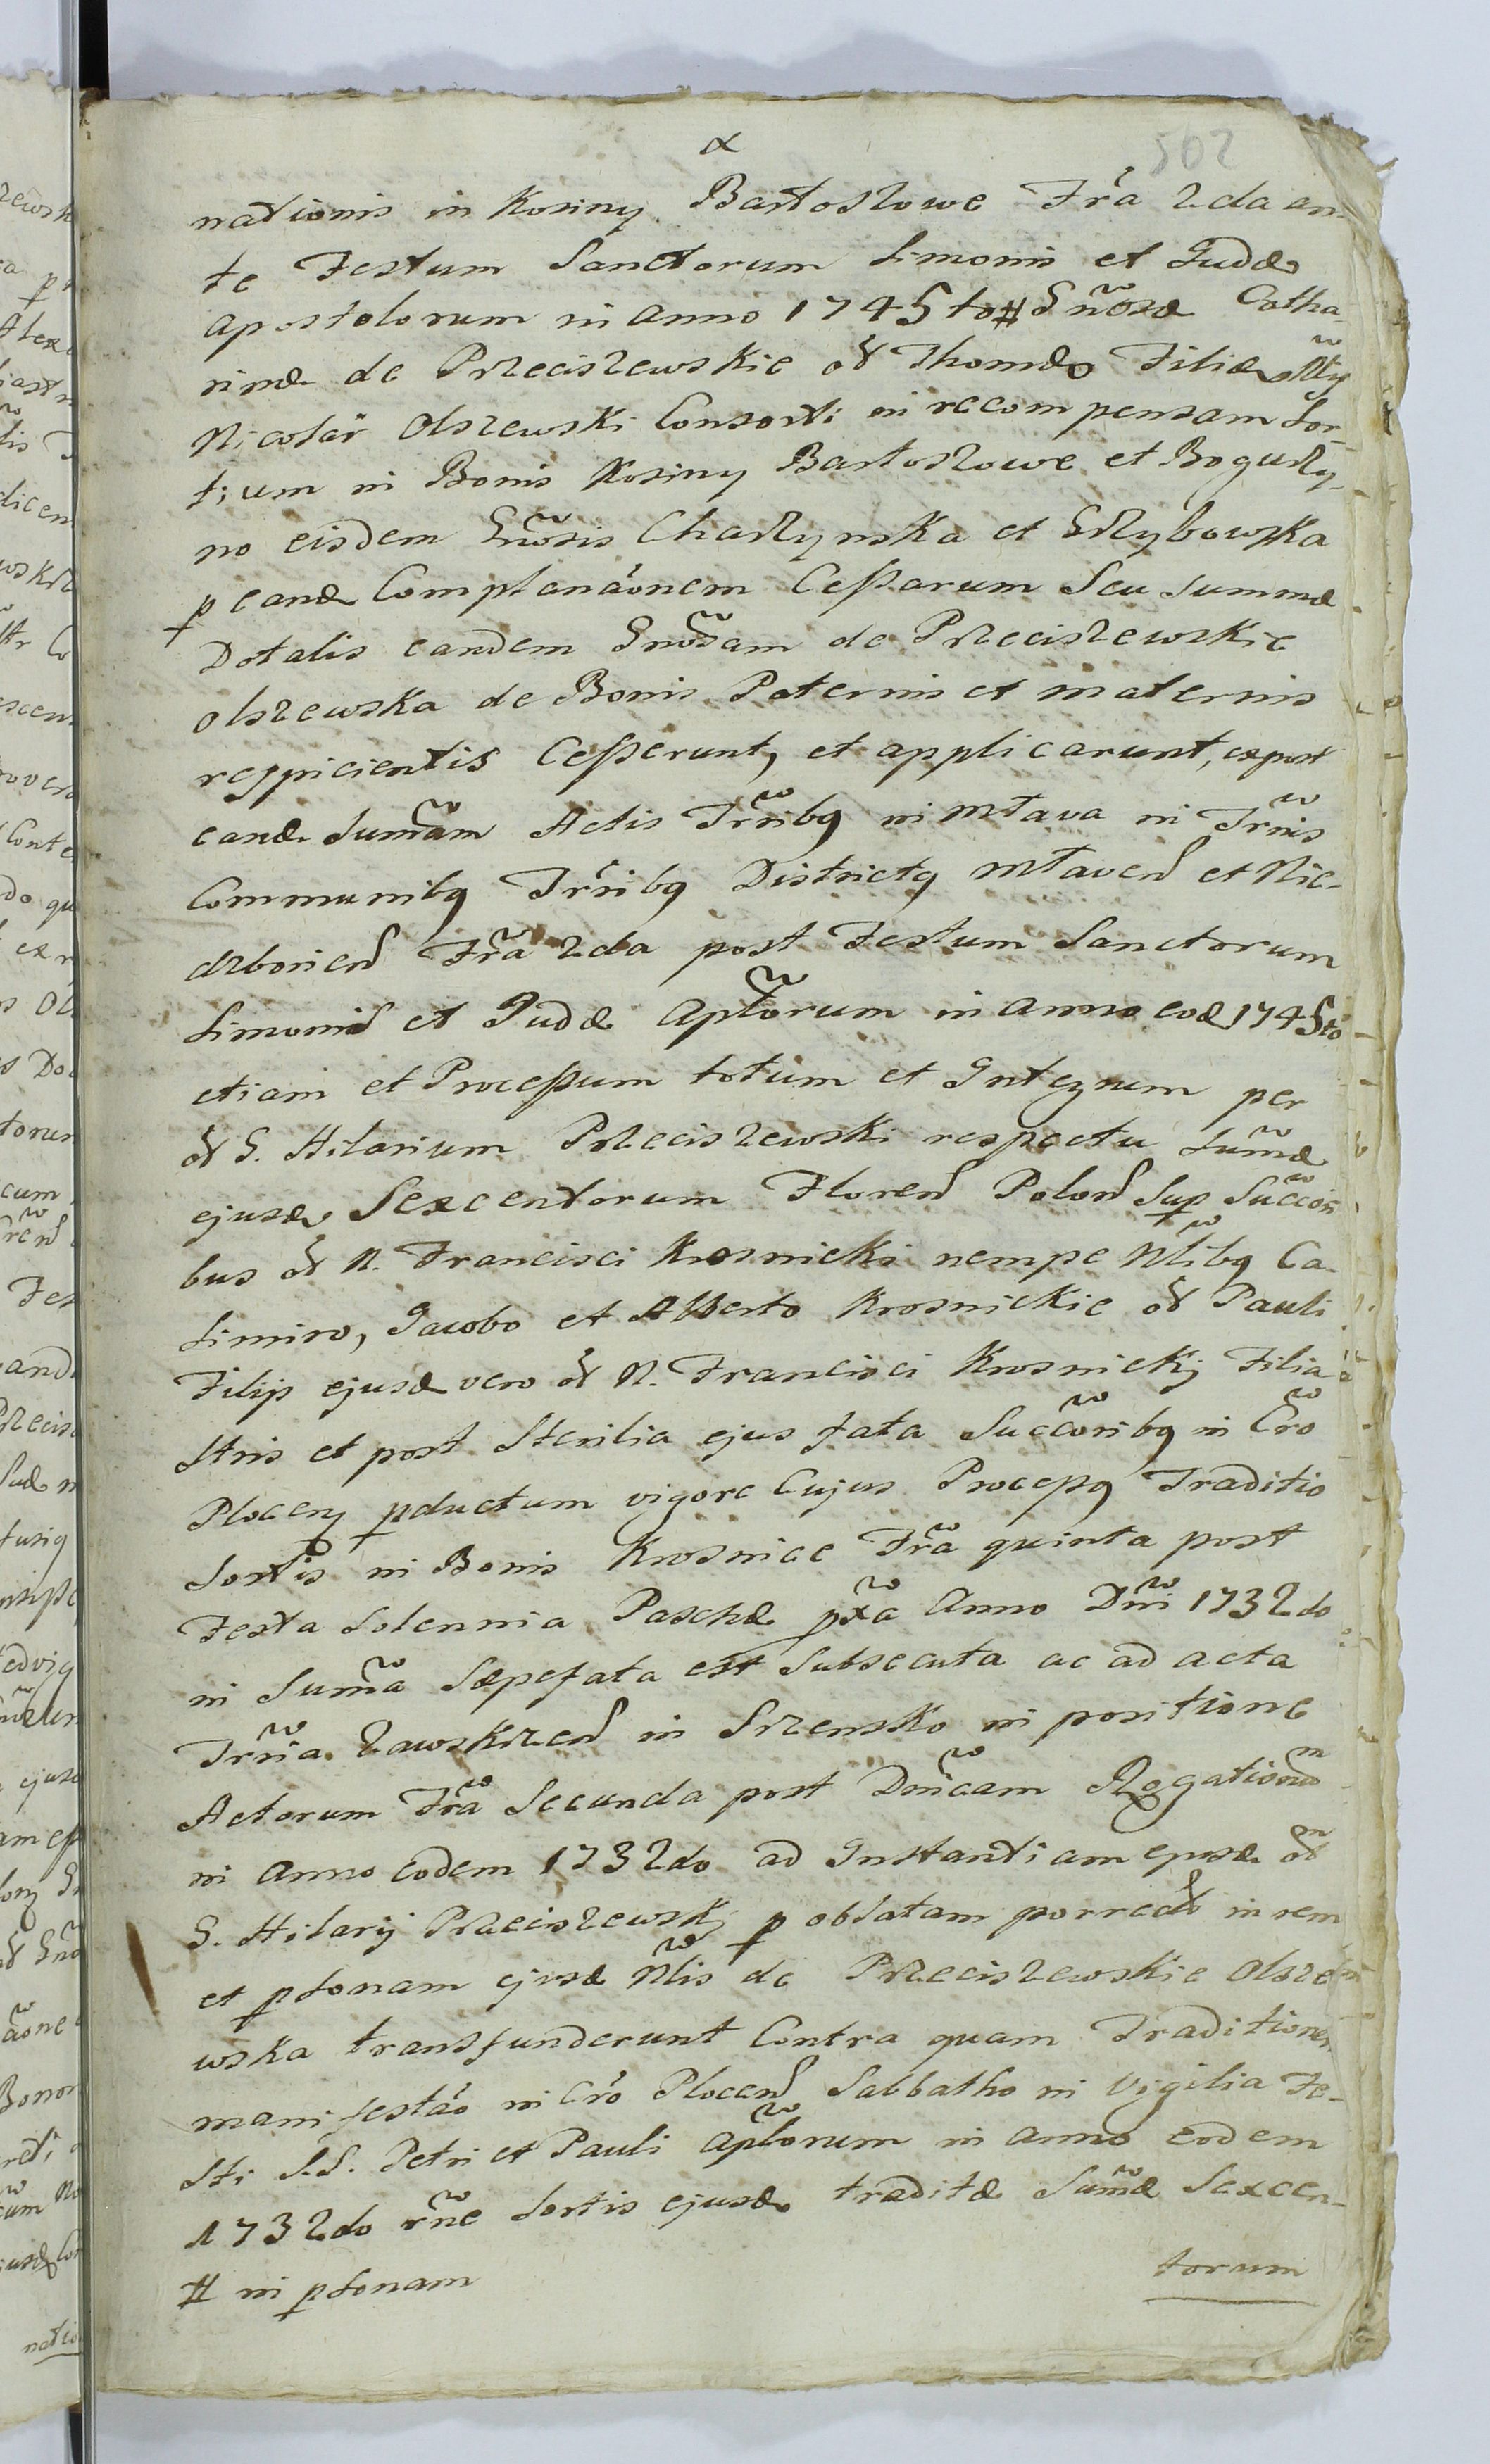 502
nationis in Kosiny Bartoszowe Fr̃a 2da an-
te Festum Sanctorum Simonis et Judæ
Apostolorum in Anno 1745to # Gñosæ Catha-
rinæ de Przeciszewskie oł Thomæ Filiæ
Nicolai Olszewski Consorti in recompensam Sor-
tium in Bonis Kosiny Bartoszowe et Boguszy-
no eisdem Gnõsis Charzynska et Grzybowska
p eand Complanãonem Cessarum Seu Summæ
Dotalis eandem Gnõsam de Przeciszewskie
Olszewska de Bonis Paternis et Maternis
respicientis Cesserunt, et applicarunt, expost
eand Sum̃am Actis Tr̃ribq in Mława in Tr̃ris
Communibq Tr̃ribq Districtq Mławeñ et Nie-
dzborieñ Fr̃a 2da post Festum Sanctorum
Simonis et Judæ Apl̃orum in Anno eod 1745to
etiam et Processum totum et Integrum per
oł G. Hilarium Przeciszewski respectu Sum̃æ
ejusd Sexcentorum Floreñ Poloñ Sup Succõri-
bus oł N. Francisci Krosnicki nempe Nl̃ibq Ca-
simiro, Jacobo et Alberto Krosnickie oł Pauli
Filijs ejusd vero oł N. Francisci Krosnickj Filia-
stris et post Sterilia ejus fata Succõribq in Cr̃o
Ploceñ pductum vigore Cujus Processq Traditio
Sortis in Bonis Krosnice Fr̃a quinta post
Festa Solennia Paschæ px̃a Anno Dñi 1732do
in Sum̃a Sæpefata est Subsecuta ac ad acta
Tr̃ria Zawskrzeñ in Szrensko in positione
Actorum Fr̃a Secunda post Dñicam Rogationum
in Anno eodem 1732do ad Instantiam ejusd oł
G. Hilarij Przeciszewskj p oblatam porrectõ in rem
et psonam ejusd Nl̃is de Przeciszewskie Olsze-
wska transfunderunt Contra quam Traditionem
manifestãõ in Cr̃o Ploceñ Sabbatho in Vigilia Fe-
sti S.S. Petri et Pauli Apl̃orum in Anno eodem
1732do r̃ne Sortis ejusd traditæ Sum̃æ Sexcen-
# in psonam
torum